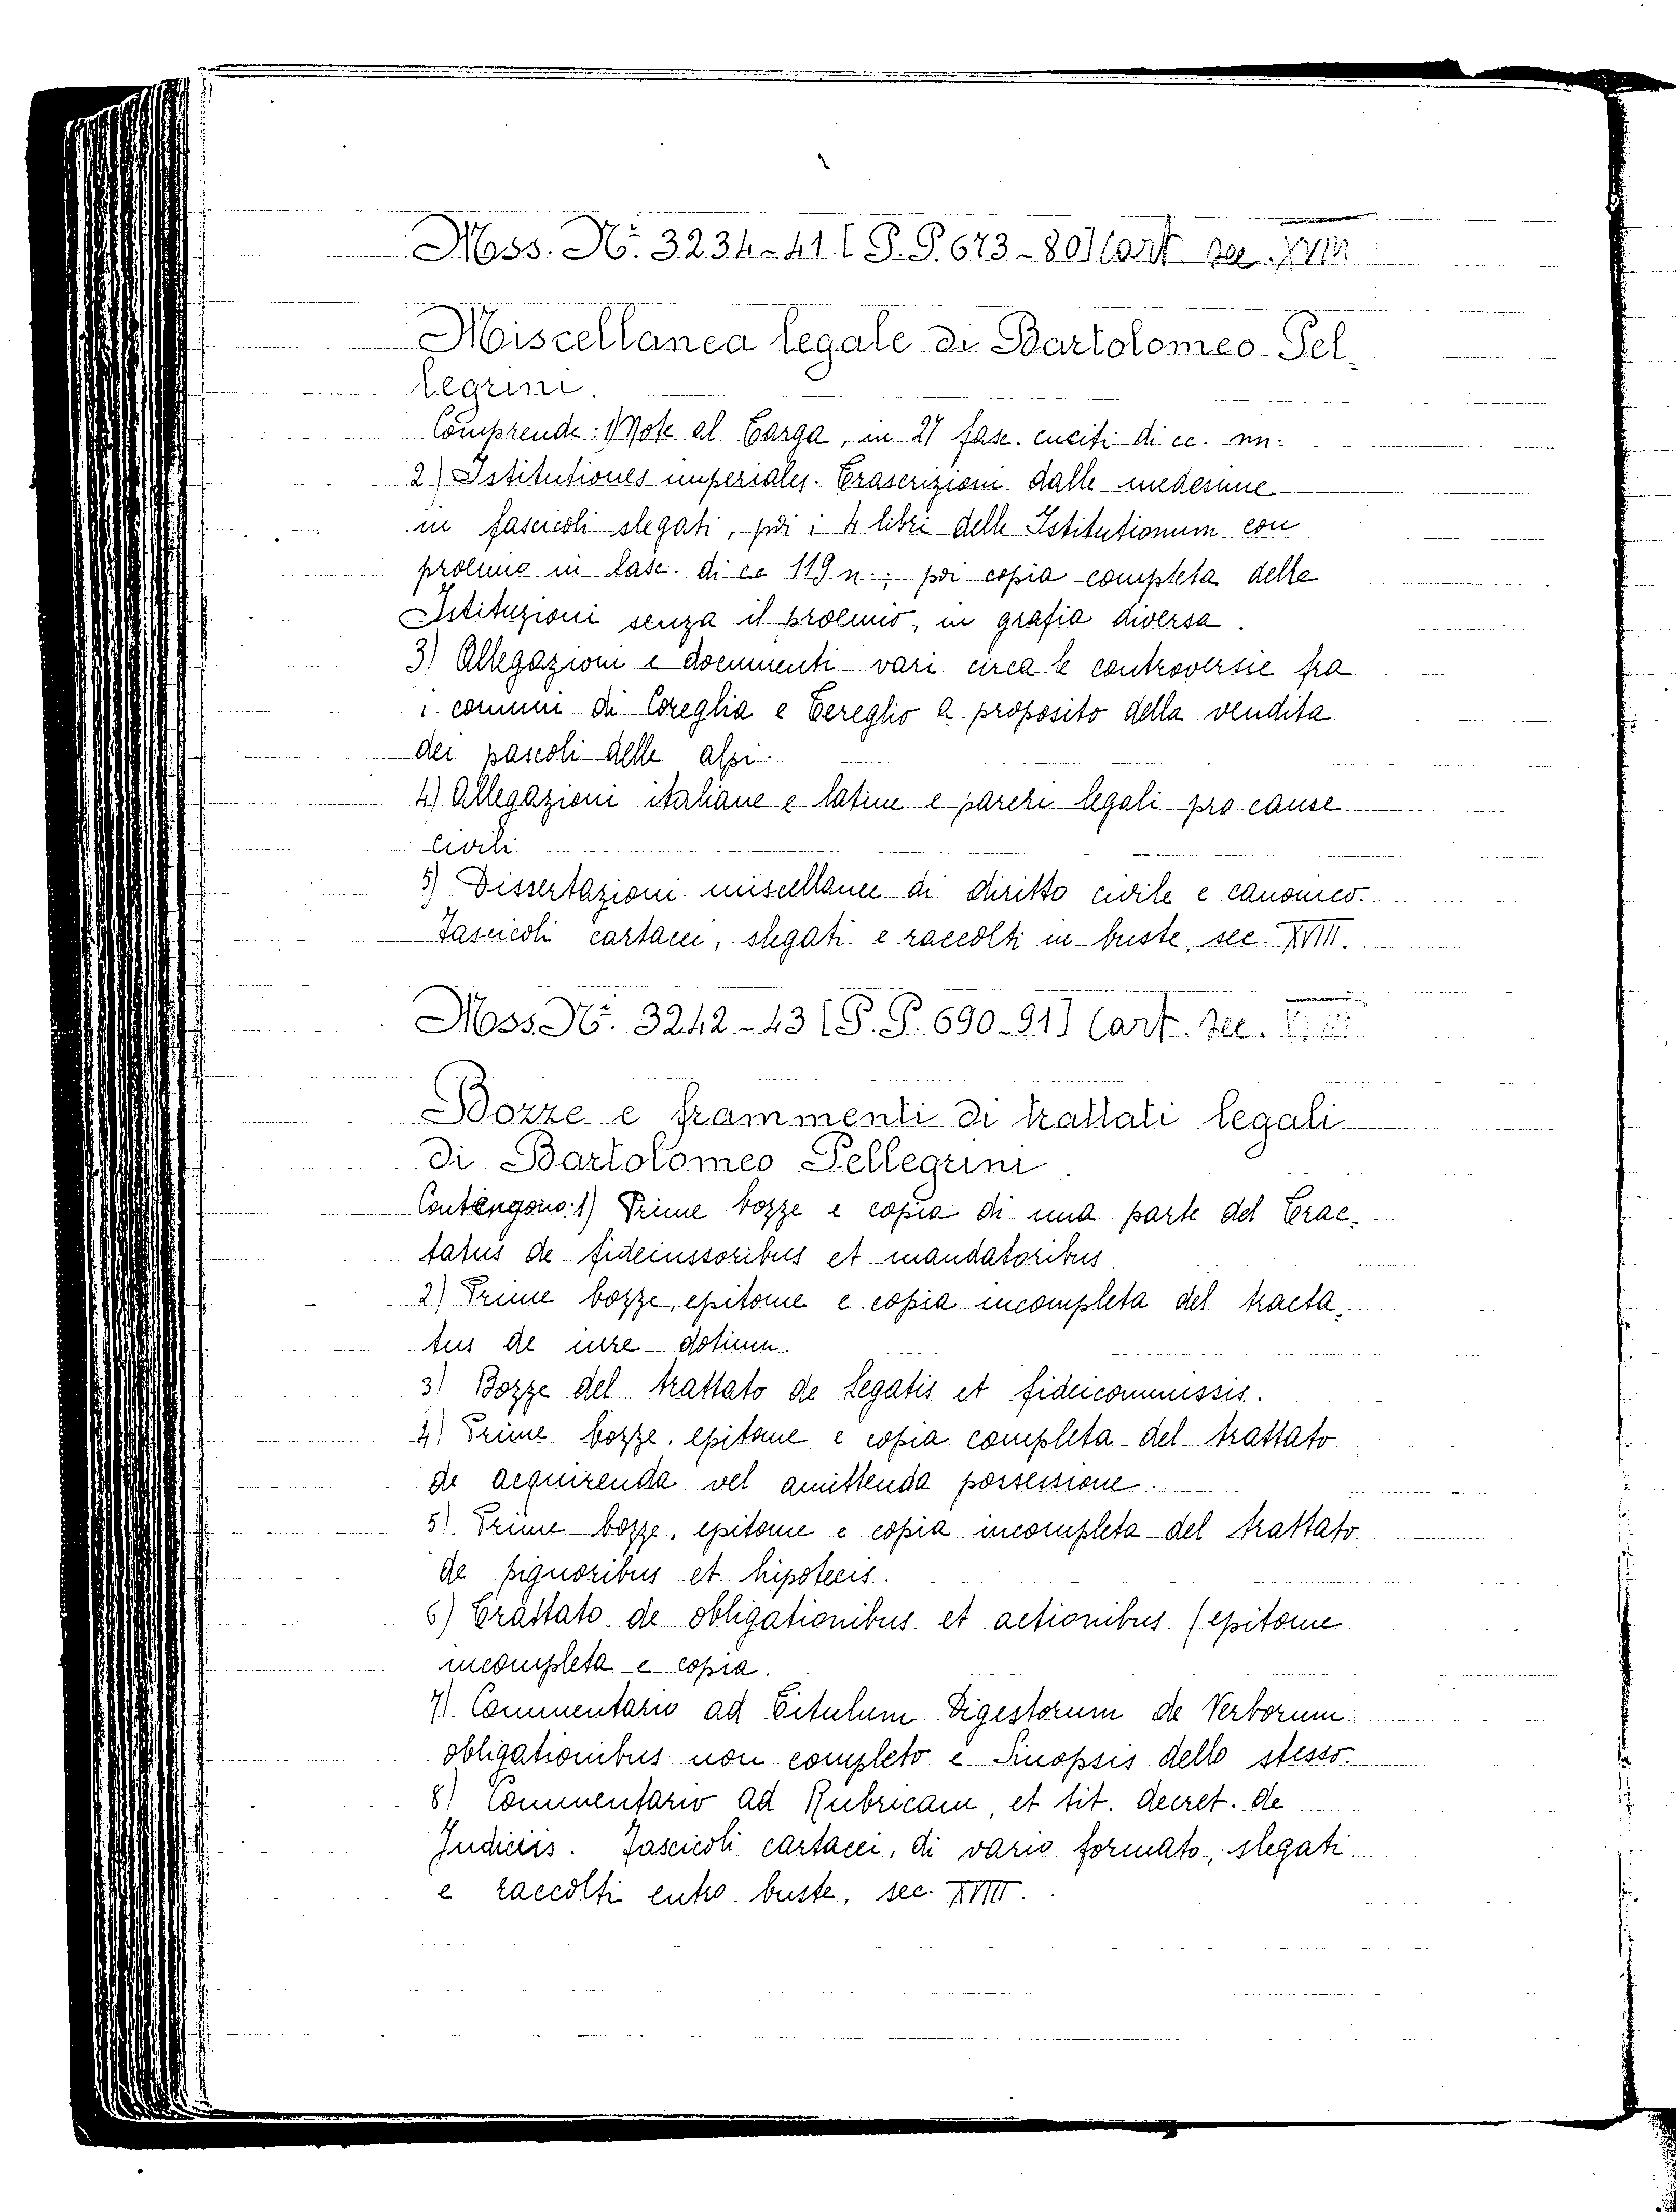 Mss. N.º 3234-41 (P. P. 673-80) Cart. sec. XVIII
Miscellanea legale di Bartolomeo Pel-
legrini.
Comprende: 1) Note al Targa, in 27 fasc. cuciti di cc. nn.
2) Istitutiones imperiales. Trascrizioni dalle medesime
in fascicoli slegati, poi i 4 libri delle Istitutionum con
proemio in fasc. di cc 119 n.; poi copia completa delle
Istituzioni senza il proemio, in grafia diversa.
3) Allegazioni e documenti vari circa le controversie fra
i comuni di Coreglia e Tereglio a proposito della vendita
dei pascoli delle alpi.
4) Allegazioni italiane e latine e pareri legali pro cause
civili
5) Dissertazioni miscellanee di diritto civile e canonico.
Fascicoli cartacei, slegati e raccolti in buste, sec. XVIII.
Mss. N.º 3242-43 (P. P. 690-91) Cart. sec.
Bozze e frammenti di trattati legali
di Bartolomeo Pellegrini.
Contengono: 1) Prime bozze e copia di una parte del Trac-
tatus de fideiussoribus et mandatoribus.
2) Prime bozze, epitome e copia incompleta del tracta-
tus de iure dotium.
3) Bozze del trattato de Legatis et fideicommissis.
4) Prime bozze, epitome e copia completa del trattato
de acquirenda vel amittenda possessione.
5) Prime bozze, epitome e copia incompleta del trattato
de pignoribus et hipotecis.
6) Trattato de obligationibus et actionibus (epitome
incompleta e copia.
7) Commentario ad Titulum Digestorum de Verborum
obligationibus non completo e Sinopsis dello stesso.
8) Commentario ad Rubricam, et tit. decret. de
Judiciis. Fascicoli cartacei, di vario formato, slegati
e raccolti entro buste, sec. XVIII.